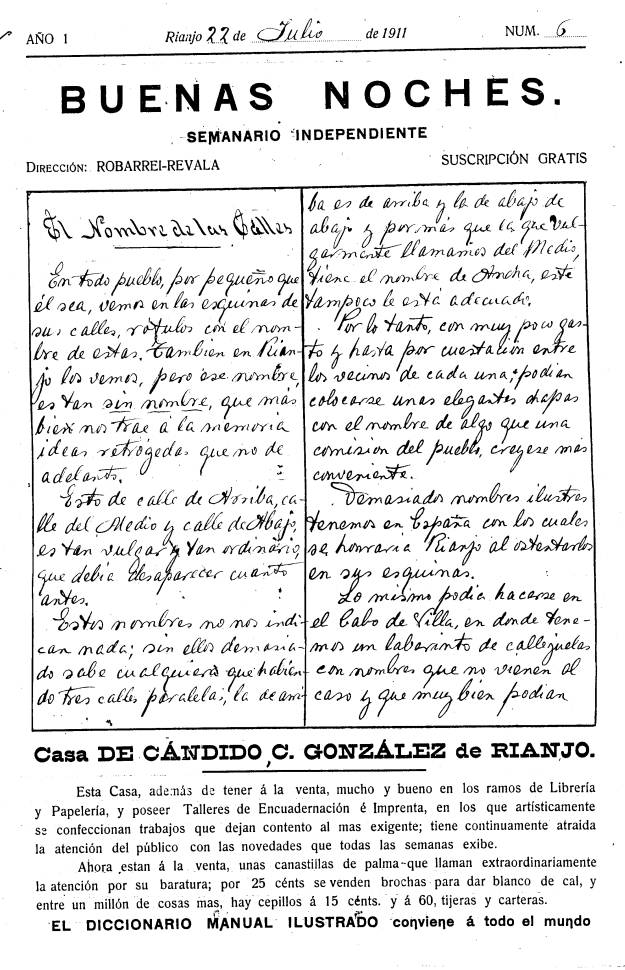 AÑO 1
Rianjo 22 de Julio de 1911
NUM. 6
BUENAS NOCHES.
SEMANARIO INDEPENDIENTE
DIRECCIÓN: ROBARREI-REVALA
SUSCRIPCIÓN GRATIS
El Nombre de las Calles
En todo pueblo, por pequeño que
él sea, vemos en las esquinas de
sus calles, rótulos con el nom-
bre de estas. Tambien en Rian-
jo los vemos, pero ese nombre,
es tan sin nombre, que más
bien nos trae á la memoria
ideas retrógedas que no de
adelanto.
Esto de calle de Arriba, ca-
lle del Medio y calle de Abajo,
es tan vulgar y tan ordinario,
que debia desaparecer cuanto
antes.
Estos nombres no nos indi-
can nada; sin ellos demasia-
do sabe cualquiera que habien-
do tres calles paralelas, la de arri-
ba es de arriba y la de abajo de
abajo y por más que la que vul-
garmente llamamos del Medio,
tiene el nombre de Ancha, este
tampoco le está adecuado.
Por lo tanto, con muy poco gas-
to y hasta por cuestación entre
los vecinos de cada una, podian
colocarse unas elegantes chapas
con el nombre de algo que una
comision del pueblo, creyese mas
conveniente.
Demasiados nombres ilustres
tenemos en España con los cuales
se honraria Rianjo al ostentarlos
en sus esquinas.
Lo mismo podia hacerse en
el Cabo de Villa, en donde tene-
mos un laberinto de callejuelas
con nombres que no vienen al
caso y que muy bien podian
Casa DE CÁNDIDO C. GONZÁLEZ de RIANJO.
Esta Casa, además de tener á la venta, mucho y bueno en los ramos de Librería
y Papelería, y poseer Talleres de Encuadernación é Imprenta, en los que artísticamente
se confeccionan trabajos que dejan contento al mas exigente; tiene continuamente atraida
la atención del público con las novedades que todas las semanas exibe.
Ahora estan á la venta, unas canastillas de palma que llaman extraordinariamente
la atención por su baratura; por 25 cénts se venden brochas para dar blanco de cal, y
entre un millón de cosas mas, hay cepillos á 15 cénts. y á 60, tijeras y carteras.
EL DICCIONARIO MANUAL ILUSTRADO conviene á todo el mundo